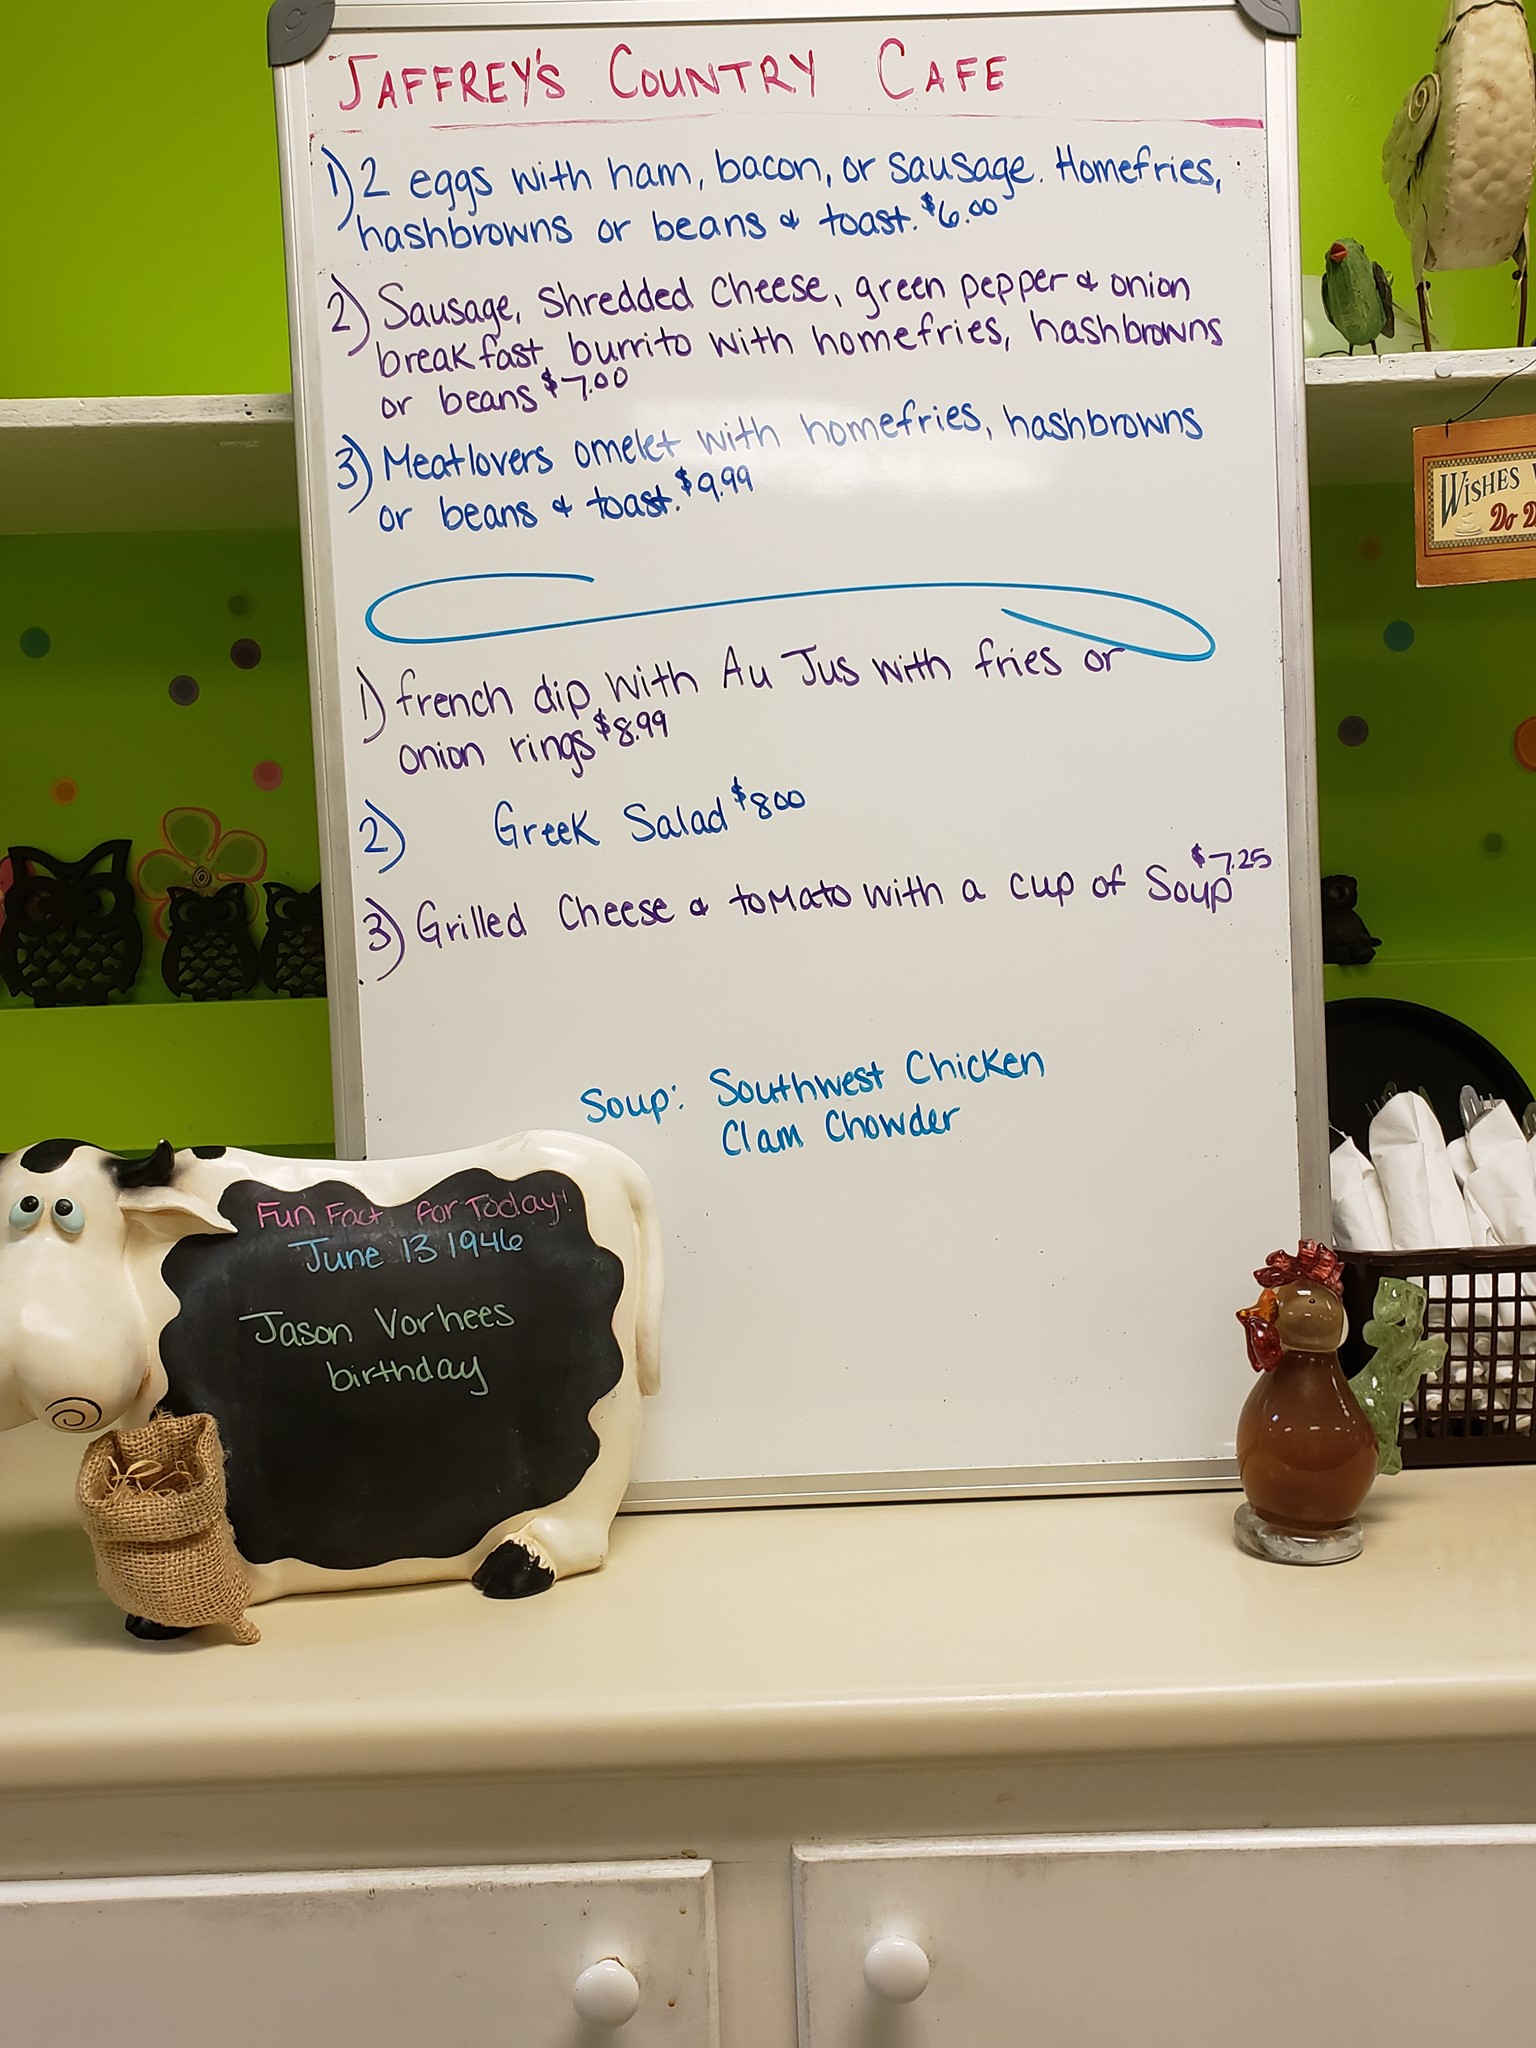 JAFFREY'S COUNTRY CAFE
1) 2 eggs with ham, bacon, or sausage. Homefries,
hashbrowns or beans & toast. $6.00
2) Sausage, Shredded Cheese, green pepper & onion
breakfast burrito with homefries, hashbrowns
or beans $7.00
3) Meatlovers omelet with homefries, hashbrowns
or beans & toast. $9.99
1) french dip with Au Jus with fries or
onion rings $8.99
2) Greek Salad $800
3) Grilled Cheese & tomato with a cup of Soup $7.25
Soup: Southwest Chicken
Clam Chowder
Fun Fact for Today!
June 13 1946
Jason Vorhees
birthday
WISHES
Do